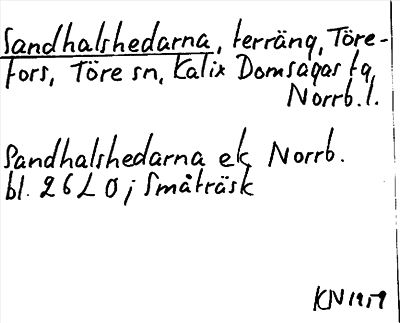 Sandhalshedarna, terräng, Töre-
fors, Töre sn, Kalix Domsagas tg,
Norrb. l.
Sandhalshedarna ek Norrb.
bl. 26 L 0 ; Småträsk
KN 1959